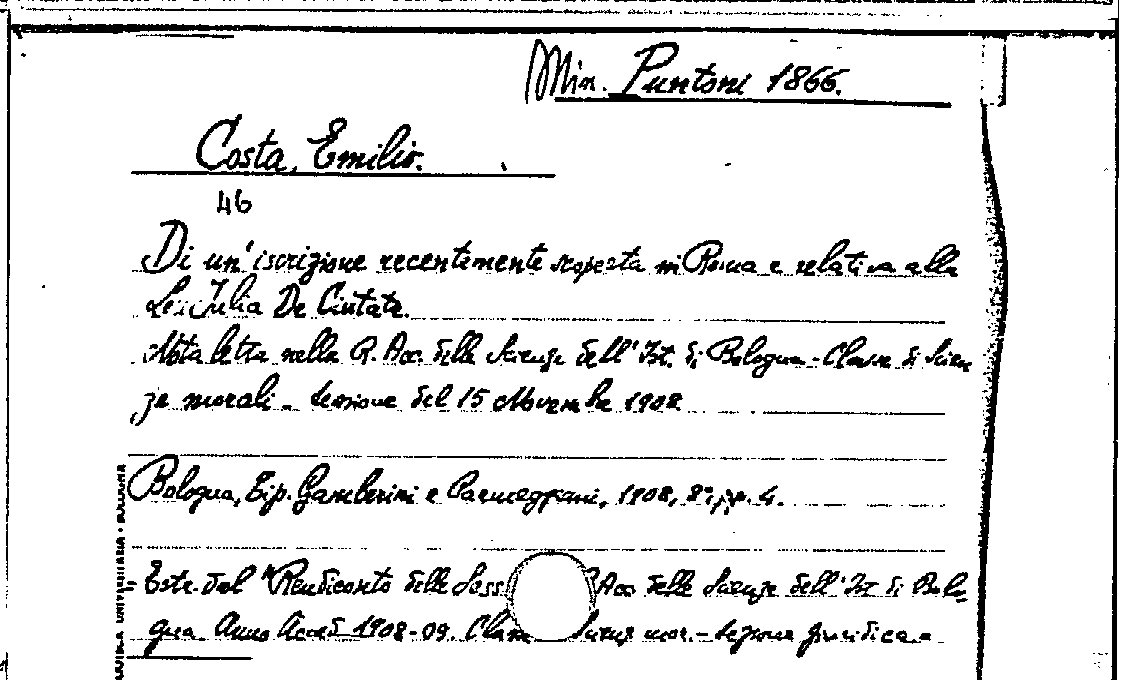 Min. Puntoni 1866.
Costa, Emilio.
46
Di un' iscrizione recentemente scoperta in Roma e relativa alla
Lex Julia De Civitate.
Nota letta nella R. Acc. delle Scienze dell' Ist. di Bologna - Classe di Scien
ze morali - Sessione del 15 Novembre 1908
Bologna, Tip. Gamberini e Parmeggiani, 1908, 8°, pp. 4.
= Estr. dal "Rendiconto delle Sess. Acc. delle Scienze dell' Ist. di Bolo
gna Anno Accad. 1908-09. Classe Scienze mor. - Sezione giuridica =
UNIVERSITARIA - BOLOGNA